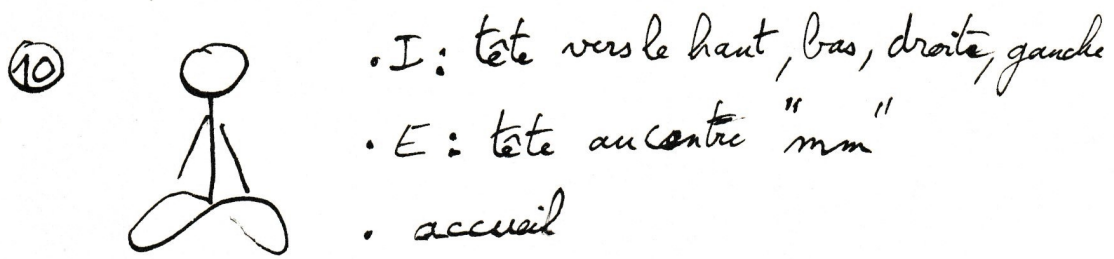 10
. I : tête vers le haut, bas, droite, gauche
. E : tête au centre "mm"
. accueil